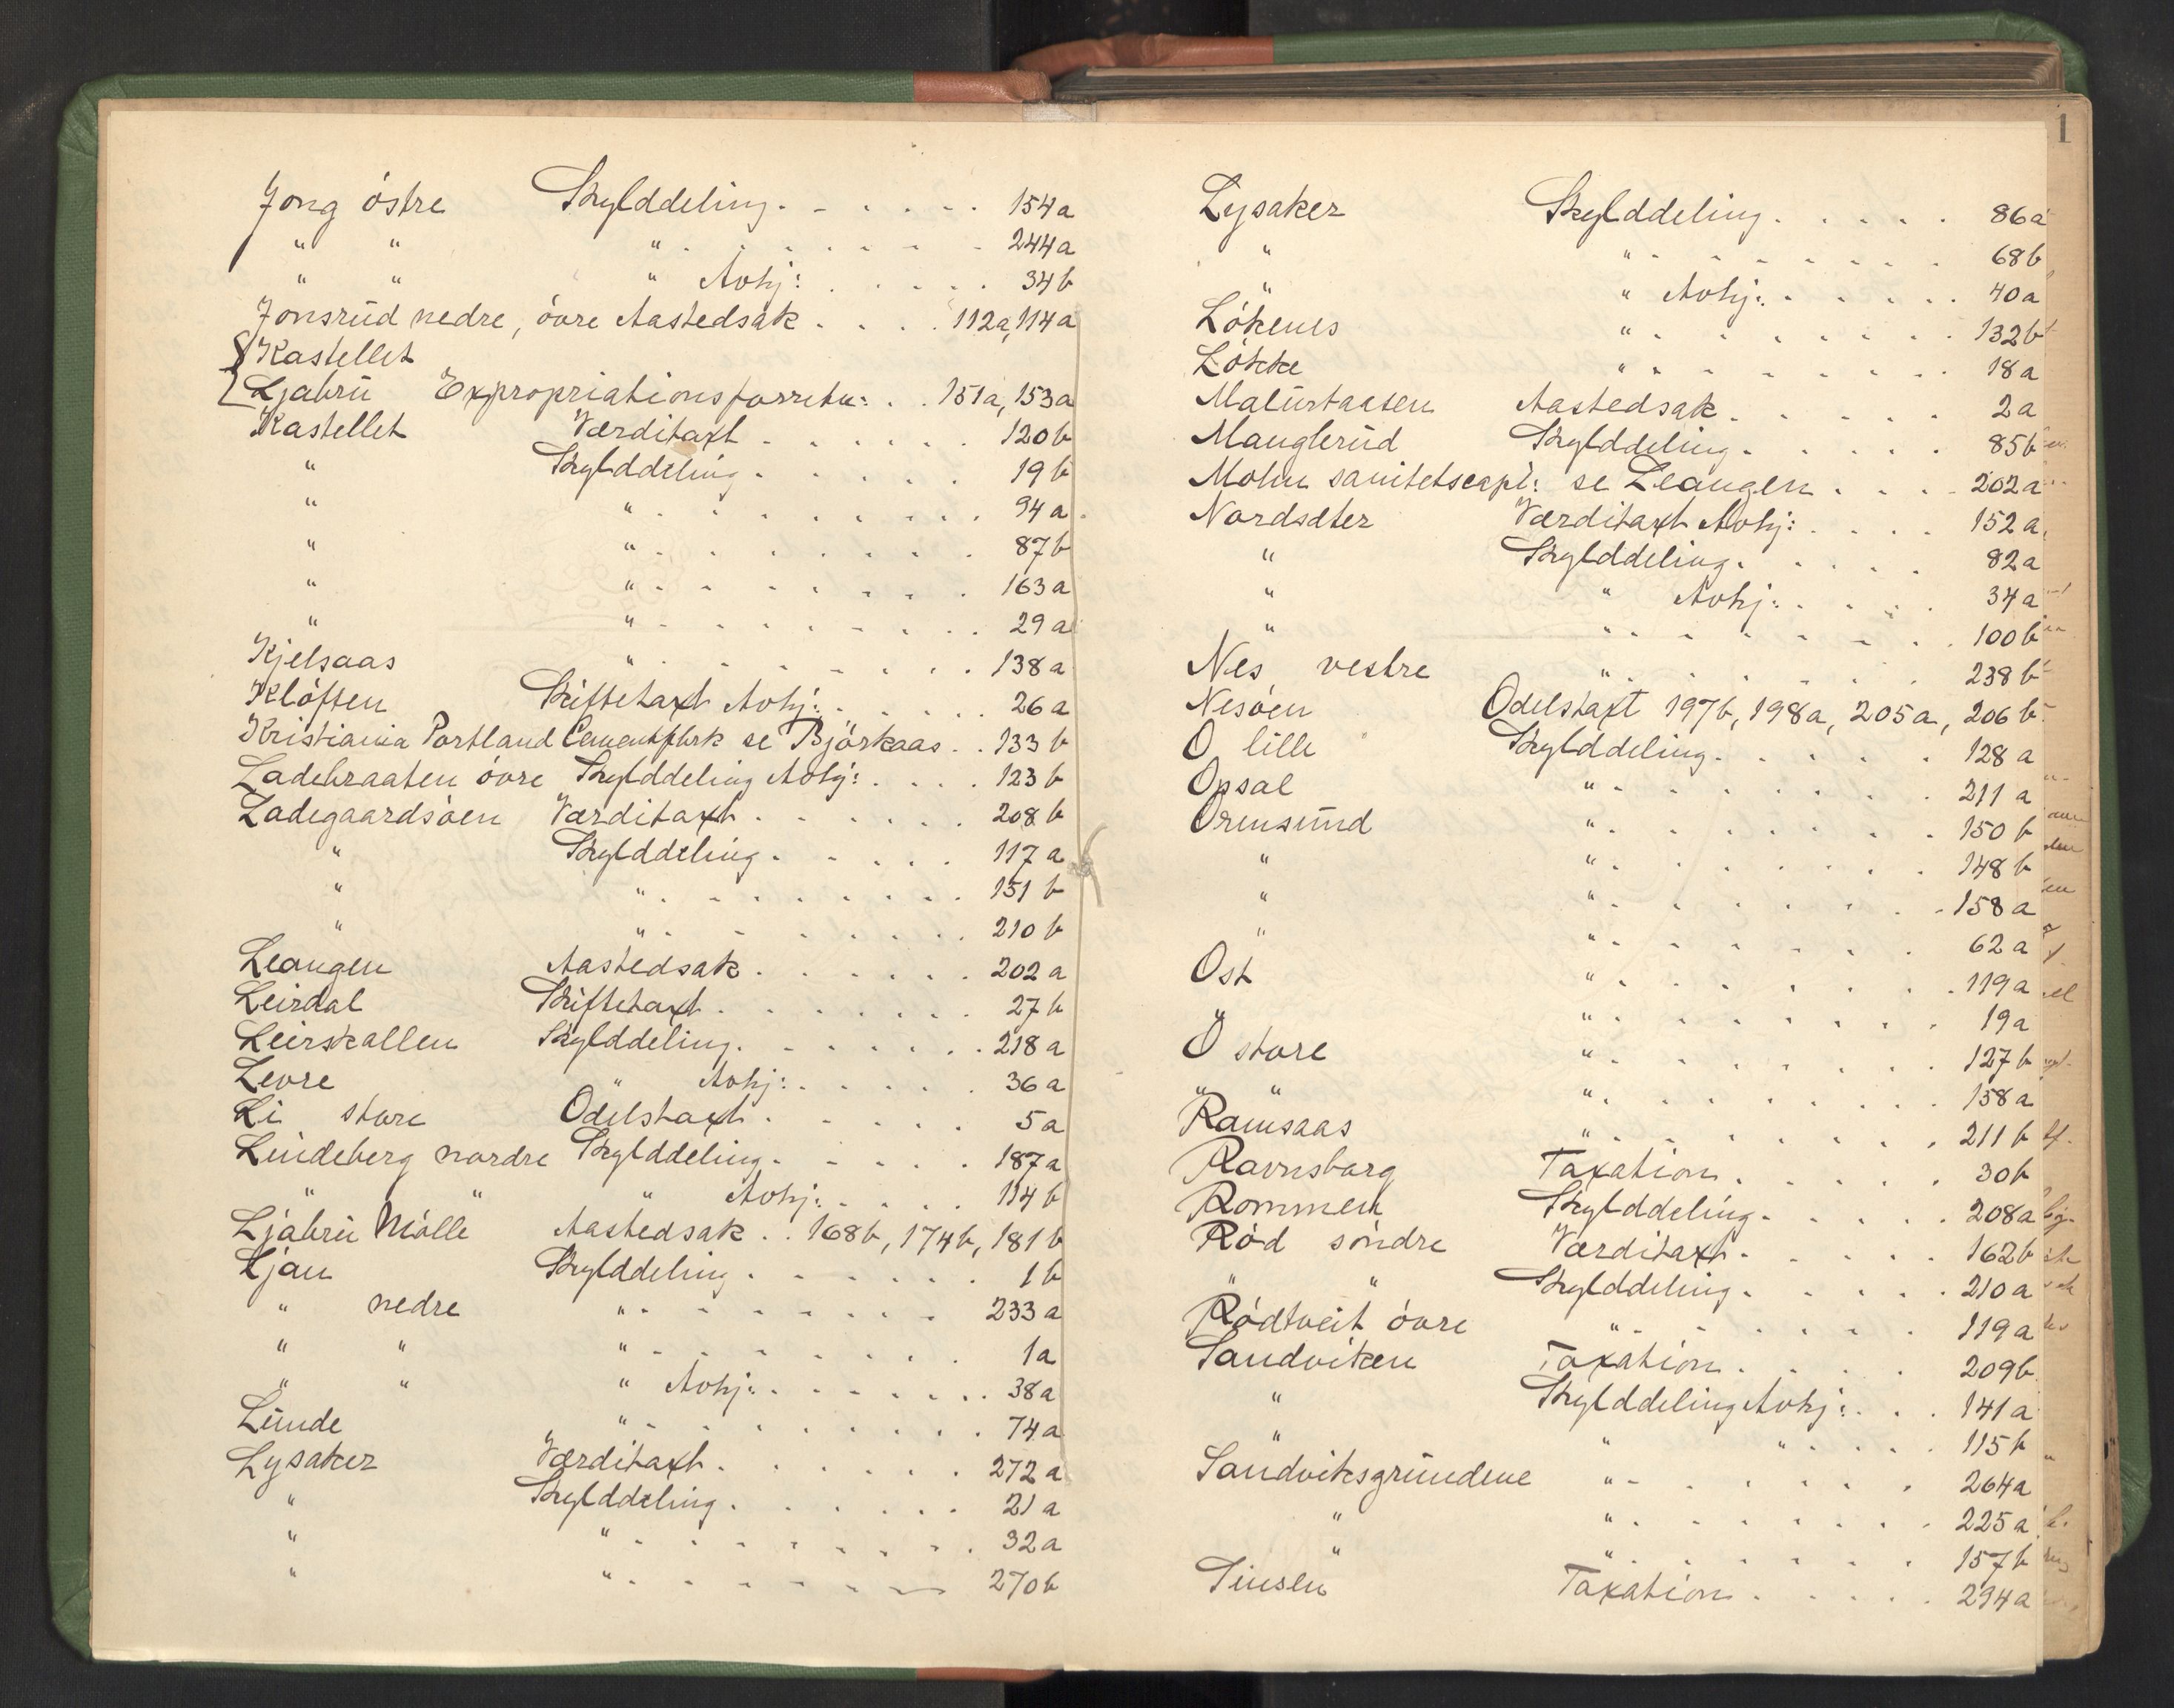 Jong östre Skylddeling. . . . . . 154a
" " " . . . . . . . . 244a
" " " Avhj: . . . . . 34b
Jonsrud nedre, övre Aastedsak . . . . 112a, 114a
Kastellet
Ljabru Expropriationsforretn: . . 151a, 153a
Kastellet Værditaxt . . . . . . 120b
" Skylddeling . . . . . . 19b
" " . . . . . . . . 94a
" " . . . . . . . . 87b
" " . . . . . . . . 163a
" " . . . . . . . . 29a
Kjelsaas " . . . . . . . . 138a
Klöften Skiftetaxt Avhj: . . . . . 26a
Kristiania Portland Cementfbrk se Björkaas . . 133b
Ladebraaten övre Skylddeling Avhj: . . . . 123b
Ladegaardsöen Værditaxt . . . . . . 208b
" Skylddeling . . . . . 117a
" " . . . . . . . . 151b
" " . . . . . . . . 210b
Leangen Aastedsak . . . . . . 202a
Leirdal Skiftetaxt . . . . . . . 27b
Leirskallen Skylddeling. . . . . . . 218a
Levre " Avhj: . . . . . 36a
Li store Odelstaxt . . . . . . 5a
Lindeberg nordre Skylddeling. . . . . . 187a
" " " Avhj: . . . . 114b
Ljabru Mölle Aastedsak . . 168b, 174b, 181b
Ljan Skylddeling . . . . . . 1b
" nedre " . . . . . . . . 233a
" " " . . . . . . . . 1a
" " " Avhj: . . . . . . . 38a
Lunde " . . . . . . . . 74a
Lysaker Værditaxt . . . . . . 272a
" Skylddeling . . . . . . 21a
" " . . . . . . . . 32a
" " . . . . . . . 270b
1
Lysaker Skylddeling . . . . . 86a
" " . . . . . . . . 68b
" " Avhj: . . . . . 40a
Lökenes " . . . . . . . 132b
Lökke " . . . . . . . . 18a
Malurtaasen Aastedsak . . . . . . 2a
Manglerud Skylddeling . . . . . . 85b
Mohn sanitetscapt: se Leangen . . . . 202a
Nordseter Værditaxt Avhj: . . . . 152a
" Skylddeling . . . . . 82a
" " Avhj: . . . . . 34a
" " . . . . . . . 100b
Nes vestre " . . . . . . . 238b
Nesöen Odelstaxt 197b, 198a, 205a, 206b
O lille Skylddeling. . . . . . 128a
Opsal " . . . . . . . . 211a
Ormsund " . . . . . . . . 150b
" " . . . . . . . . 148b
" " . . . . . . . . 158a
" " . . . . . . . . 62a
Ost " . . . . . . . . 119a
" " . . . . . . . . 19a
O store " . . . . . . . . 127b
" " " . . . . . . . . 158a
Ramsaas " . . . . . . . . 211b
Ravnsborg Taxation . . . . . . 30b
Rommen Skylddeling . . . . . 208a
Röd söndre Værditaxt . . . . . . 162b
" " Skylddeling . . . . . 210a
Rödtveit övre " . . . . . . . 119a
Sandviken Taxation . . . . . 209b
" Skylddeling Avhj: . . . 141a
" " " . . . . 115b
Sandviksgrundene " . . . . . . . 264a
" " . . . . . . . . 225a
" " . . . . . . . . 157b
Sinsen Taxation . . . . . 294a